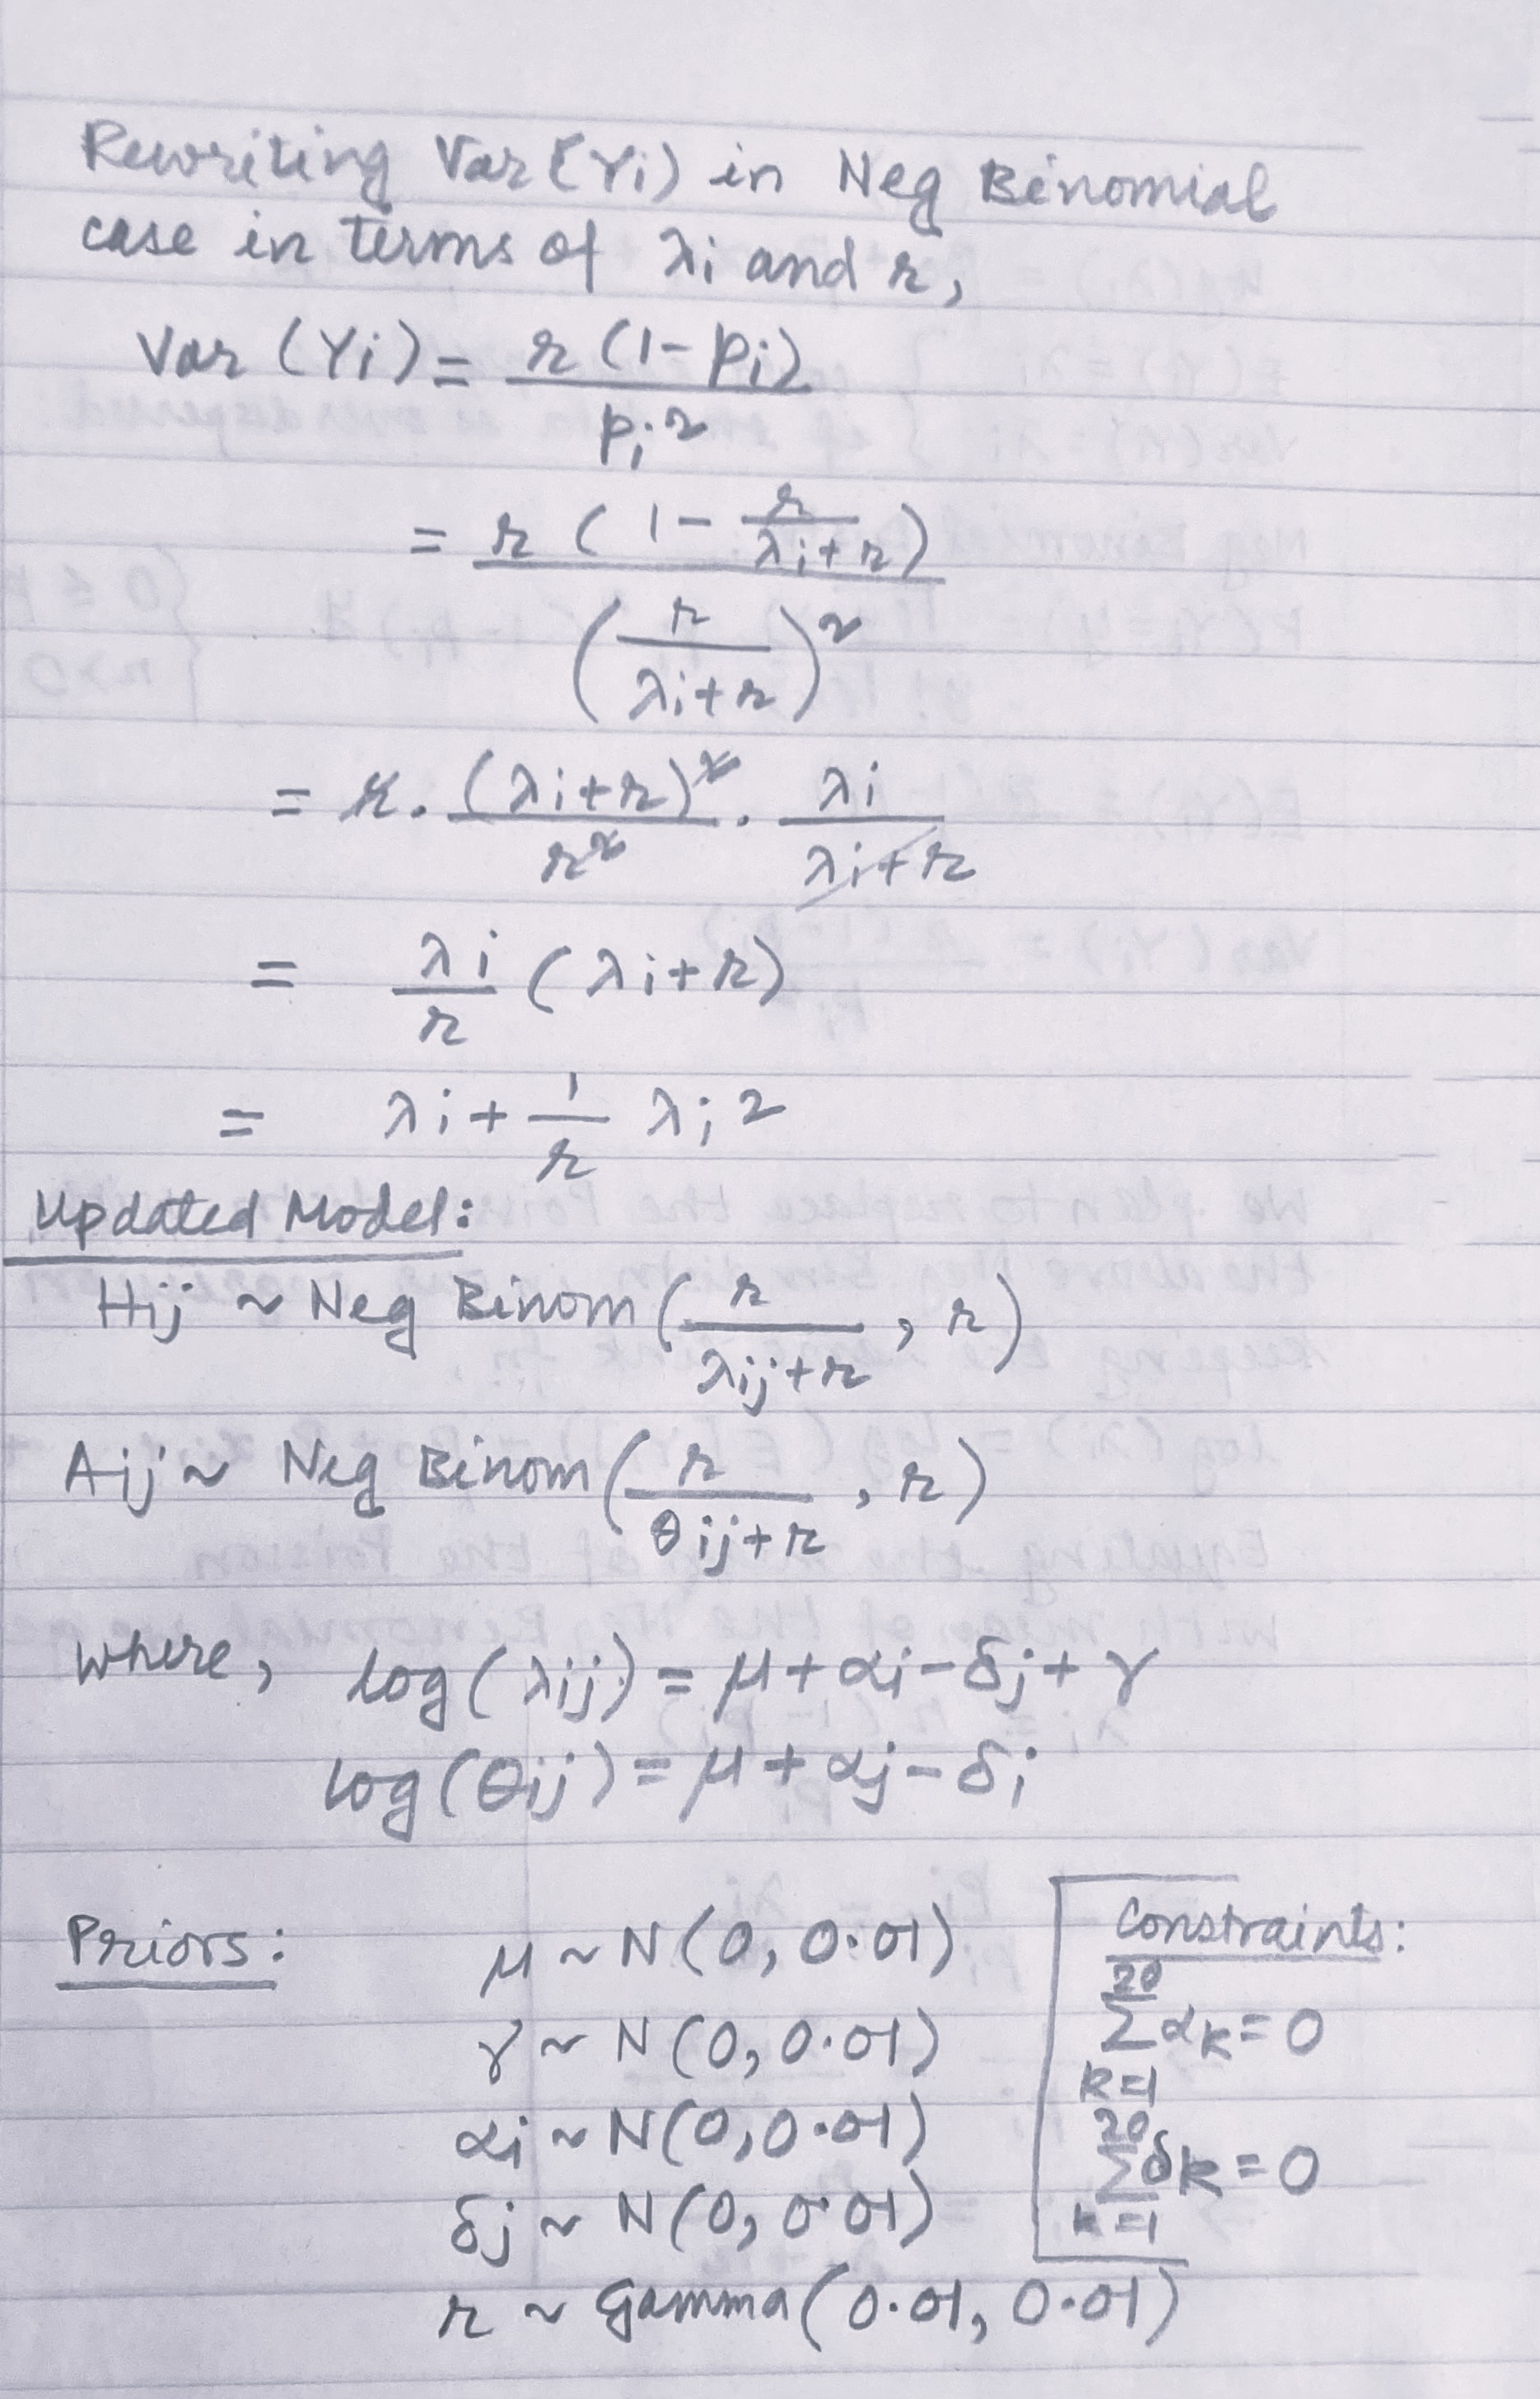 Rewriting Var(Yi) in Neg Binomial
case in terms of λi and r,
Var (Yi) = r (1 - pi) / pi²
= r (1 - r/(λi + r)) / (r/(λi + r))²
= r · (λi + r)² / r² · λi / (λi + r)
= λi/r (λi + r)
= λi + 1/r λi²
Updated Model:
Hij ~ Neg Binom (r/(λij + r), r)
Aij ~ Neg Binom (r/(θij + r), r)
where, log(λij) = μ + αi - δj + γ
log(θij) = μ + αj - δi
Priors: μ ~ N(0, 0.01)
γ ~ N(0, 0.01)
αi ~ N(0, 0.01)
δj ~ N(0, 0.01)
r ~ Gamma(0.01, 0.01)
Constraints:
∑_{k=1}^{20} αk = 0
∑_{k=1}^{20} δk = 0